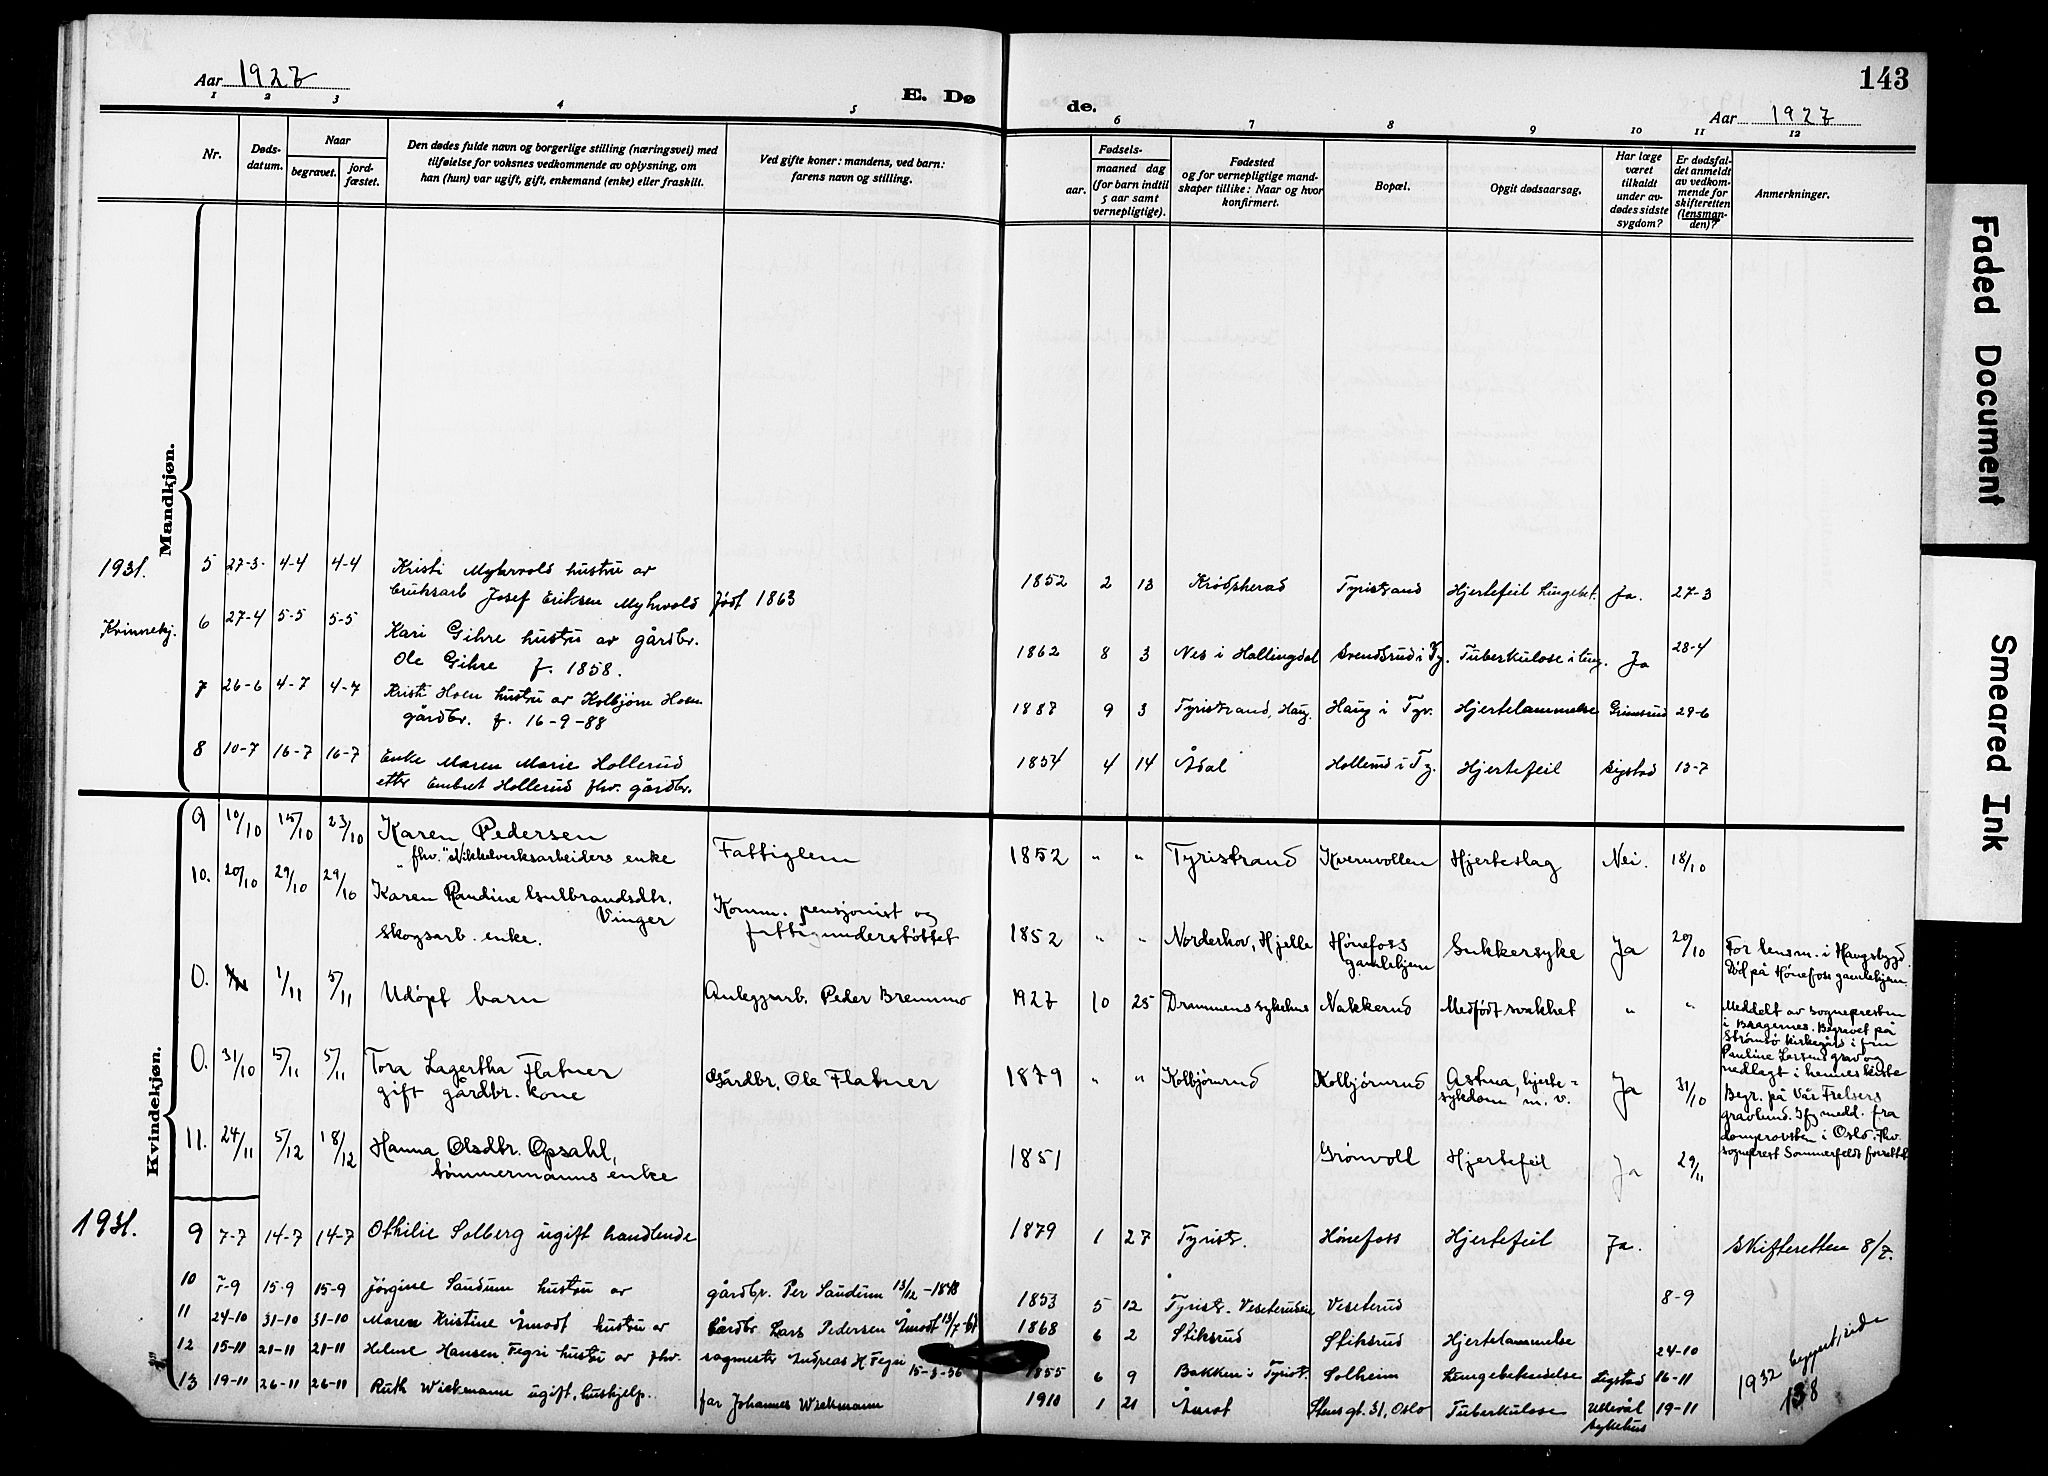 Aar 1927
E. Dø
de.
143
Aar 1927
1 2 3 4 5 6 7 8 9 10 11 12
Nr.
Døds-
datum.
Naar
begravet.
jord-
fæstet.
Den dødes fulde navn og borgerlige stilling (næringsvei) med
tilføielse for voksnes vedkommende av oplysning, om
han (hun) var ugift, gift, enkemand (enke) eller fraskilt.
Ved gifte koner: mandens, ved barn:
farens navn og stilling.
Fødsels-
aar.
maaned dag
(for barn indtil
5 aar samt
vernepligtige).
Fødested
og for vernepligtige mand-
skaper tillike: Naar og hvor
konfirmert.
Bopæl.
Opgit dødsaarsag.
Har læge
været
tilkaldt
under av-
dødes sidste
sygdom?
Er dødsfal-
det anmeldt
av vedkom-
mende for
skifteretten
(lensman-
den)?
Anmerkninger.
Mandkjøn.
1931.
Kvinnekj.
5 27-3. 4-4 4-4 Kristi Myhrvold hustru av
bruksarb Josef Eriksen Myhrvold født 1863
1852 2 13 Krødsherad Tyristrand Hjertefeil Lungebet. Ja. 27-3
6 27-4 5-5 5-5 Kari Gihre hustru av gårdbr.
Ole Gihre f. 1858.
1862 8 3 Nes i Hallingdal Svendsrud i Ty. Tuberkulose i lung. Ja 28-4
7 26-6 4-7 4-7 Kristi Hoen hustru av Kolbjørn Hoen
gårdbr. f. 16-9-88
1887 9 3 Tyristrand, Haug. Haug i Tyr. Hjertelammelse Grimsrud 29-6
8 10-7 16-7 16-7 Enke Maren Marie Hollerud
etter Embret Hollerud fhv. gårdbr.
1854 4 14 Ådal Hollerud i Ty. Hjertefeil Sigstad 13-7
Kvindekjøn.
9 10/10 15/10 23/10 Karen Pedersen
fhv. Nikkelverksarbeiders enke Fattiglem
1852 " " Tyristrand Kvernvollen Hjerteslag Nei. 18/10
10. 20/10 29/10 29/10 Karen Randine Gulbrandsdtr.
Vinger
skogsarb. enke.
Komm. pensjonist og
fattigunderstøttet
1852 " " Norderhov, Hjelle Hønefoss
gamlehjem Sukkersyke Ja 20/10 For lensm. i Haugsbygd.
Död på Hønefoss gamlehjem.
0. 1/11 5/11 Udöpt barn Anleggsarb. Peder Bremmo
1927 10 25 Drammens sykehus Nakkerud Medfödt svakhet " " Meddelt av sognepresten
i Bragernes. Begravet på
Strømsö kirkegård i fru
Pauline Larsens grav og
nedlagt i hennes kiste
0. 31/10 5/11 5/11 Tora Lagertha Flatner
gift gårdbr. kone Gårdbr. Ole Flatner
1879 " " Kolbjörnrud Kolbjörnrud Astma, hjerte-
sykdom m. v. Ja 31/10 Begr. på Vår Frelsers
gravlund. Ifg medd. fra
domprovsten i Oslo. Fhv.
sogneprest Sommerfeldt forrettet
11. 24/11 5/12 18/12 Hanna Olsdtr. Opsahl,
tömmermanns enke
1851 Grönvoll Hjertefeil Ja 29/11
1931.
9 7-7 14-7 14-7 Othilie Solberg ugift handlende
1879 1 27 Tyristr. Hønefoss Hjertefeil Ja. Skifteretten 8/7.
10 7-9 15-9 15-9 Jørgine Saudum hustru av gårdbr. Per Saudum 13/12-1848
1853 5 12 Tyristr. Veseterudeie Veseterud 8-9
11 24-10 31-10 31-10 Maren Kristine Åmodt hustru av Gårdbr Lars Pedersen Åmodt 13/7-61
1868 6 2 Stiksrud Stiksrud Hjertelammelse 24-10
12 15-11 21-11 21-11 Helene Hansen Fegri hustru av fhv. sagmester Andreas H. Fegri 15-3-56
1855 6 9 Bakken i Tyrist. Solheim Lungebetendelse Sigstad 16-11
13 19-11 26-11 26-11 Ruth Wiekmann ugift, hushjelp. far Johannes Wiekmann
1910 1 21 Åmot Stensgt. 31, Oslo Tuberkulose Ullevål
sykehus 19-11
1932
138
Faded Document
Smeared Ink